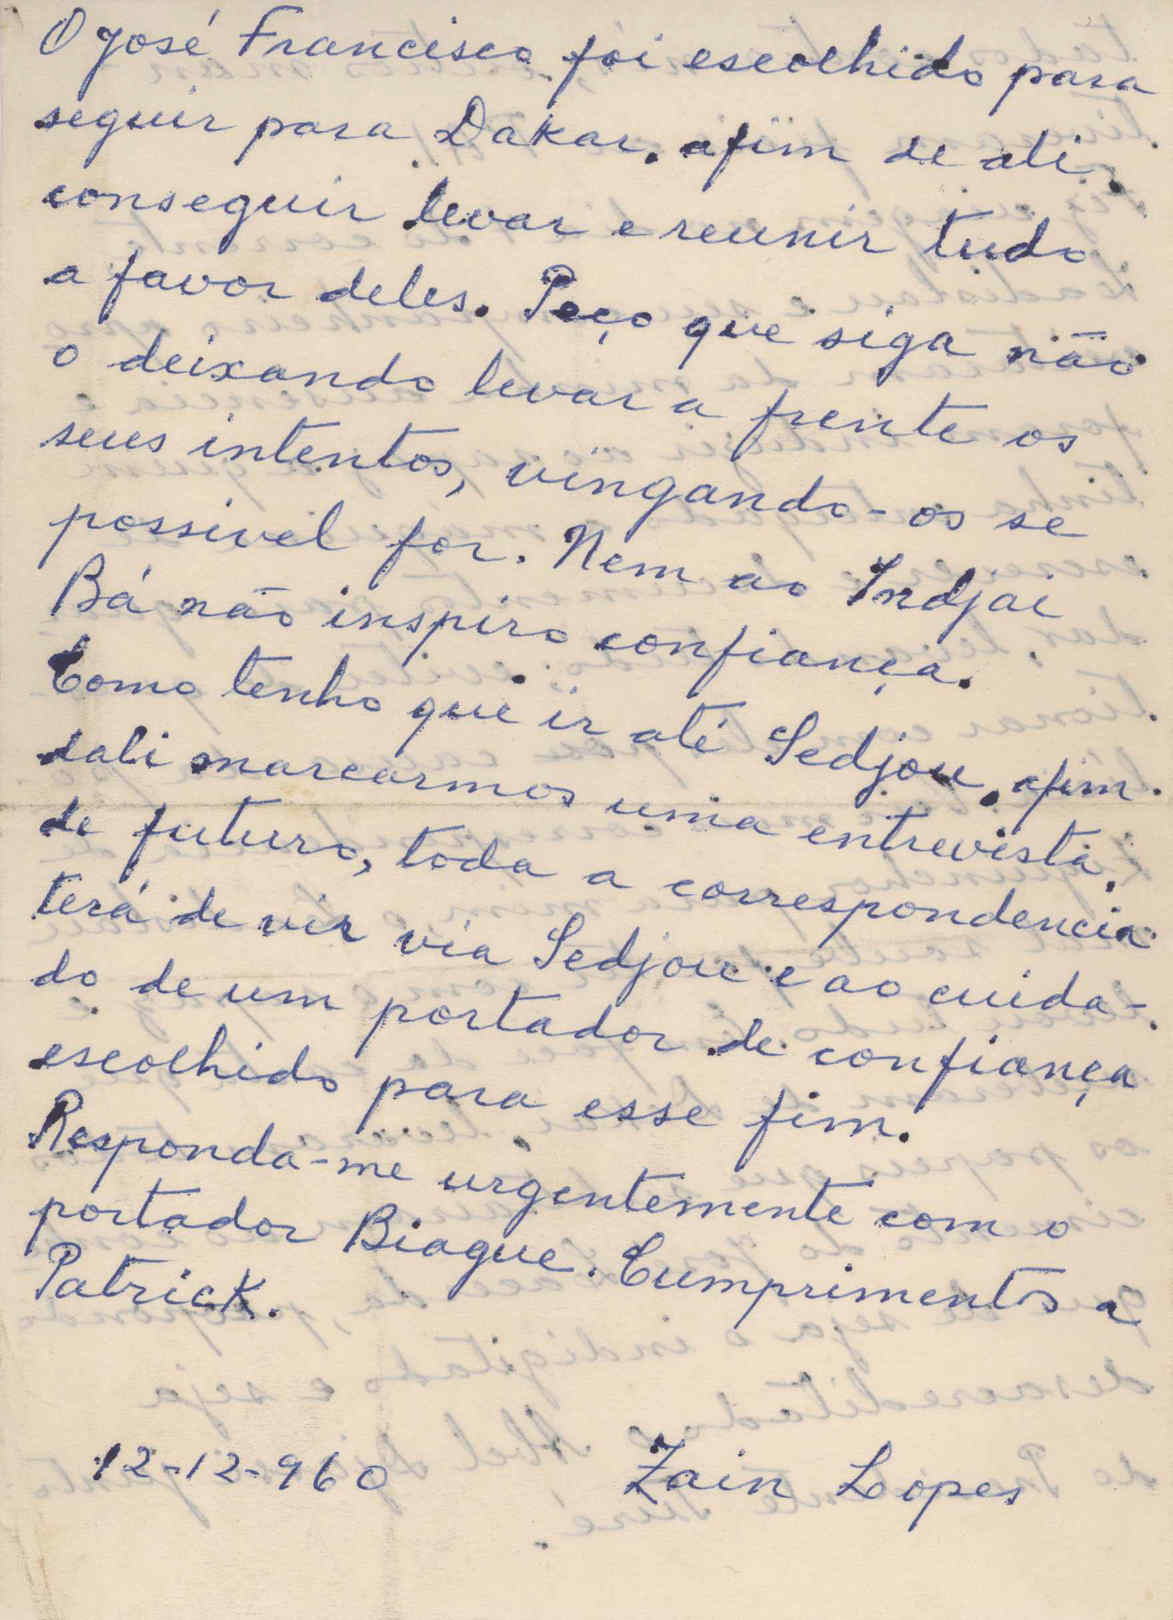 O José Francisco foi escolhido para
seguir para Dakar. afim de ali
conseguir levar e reunir tudo
a favor deles. Peço que siga não
o deixando levar a frente os
seus intentos, vingando-os se
possivel for. Nem ao Indjai
Bá não inspiro confiança.
Como tenho que ir até Sedjou, afim
dali marcarmos uma entrevista,
de futuro, toda a correspondencia
terá de vir via Sedjou e ao cuida-
do de um portador de confiança
escolhido para esse fim.
Responda-me urgentemente com o
portador Biague. Cumprimentos a
Patrick.
12-12-960 Zain Lopes